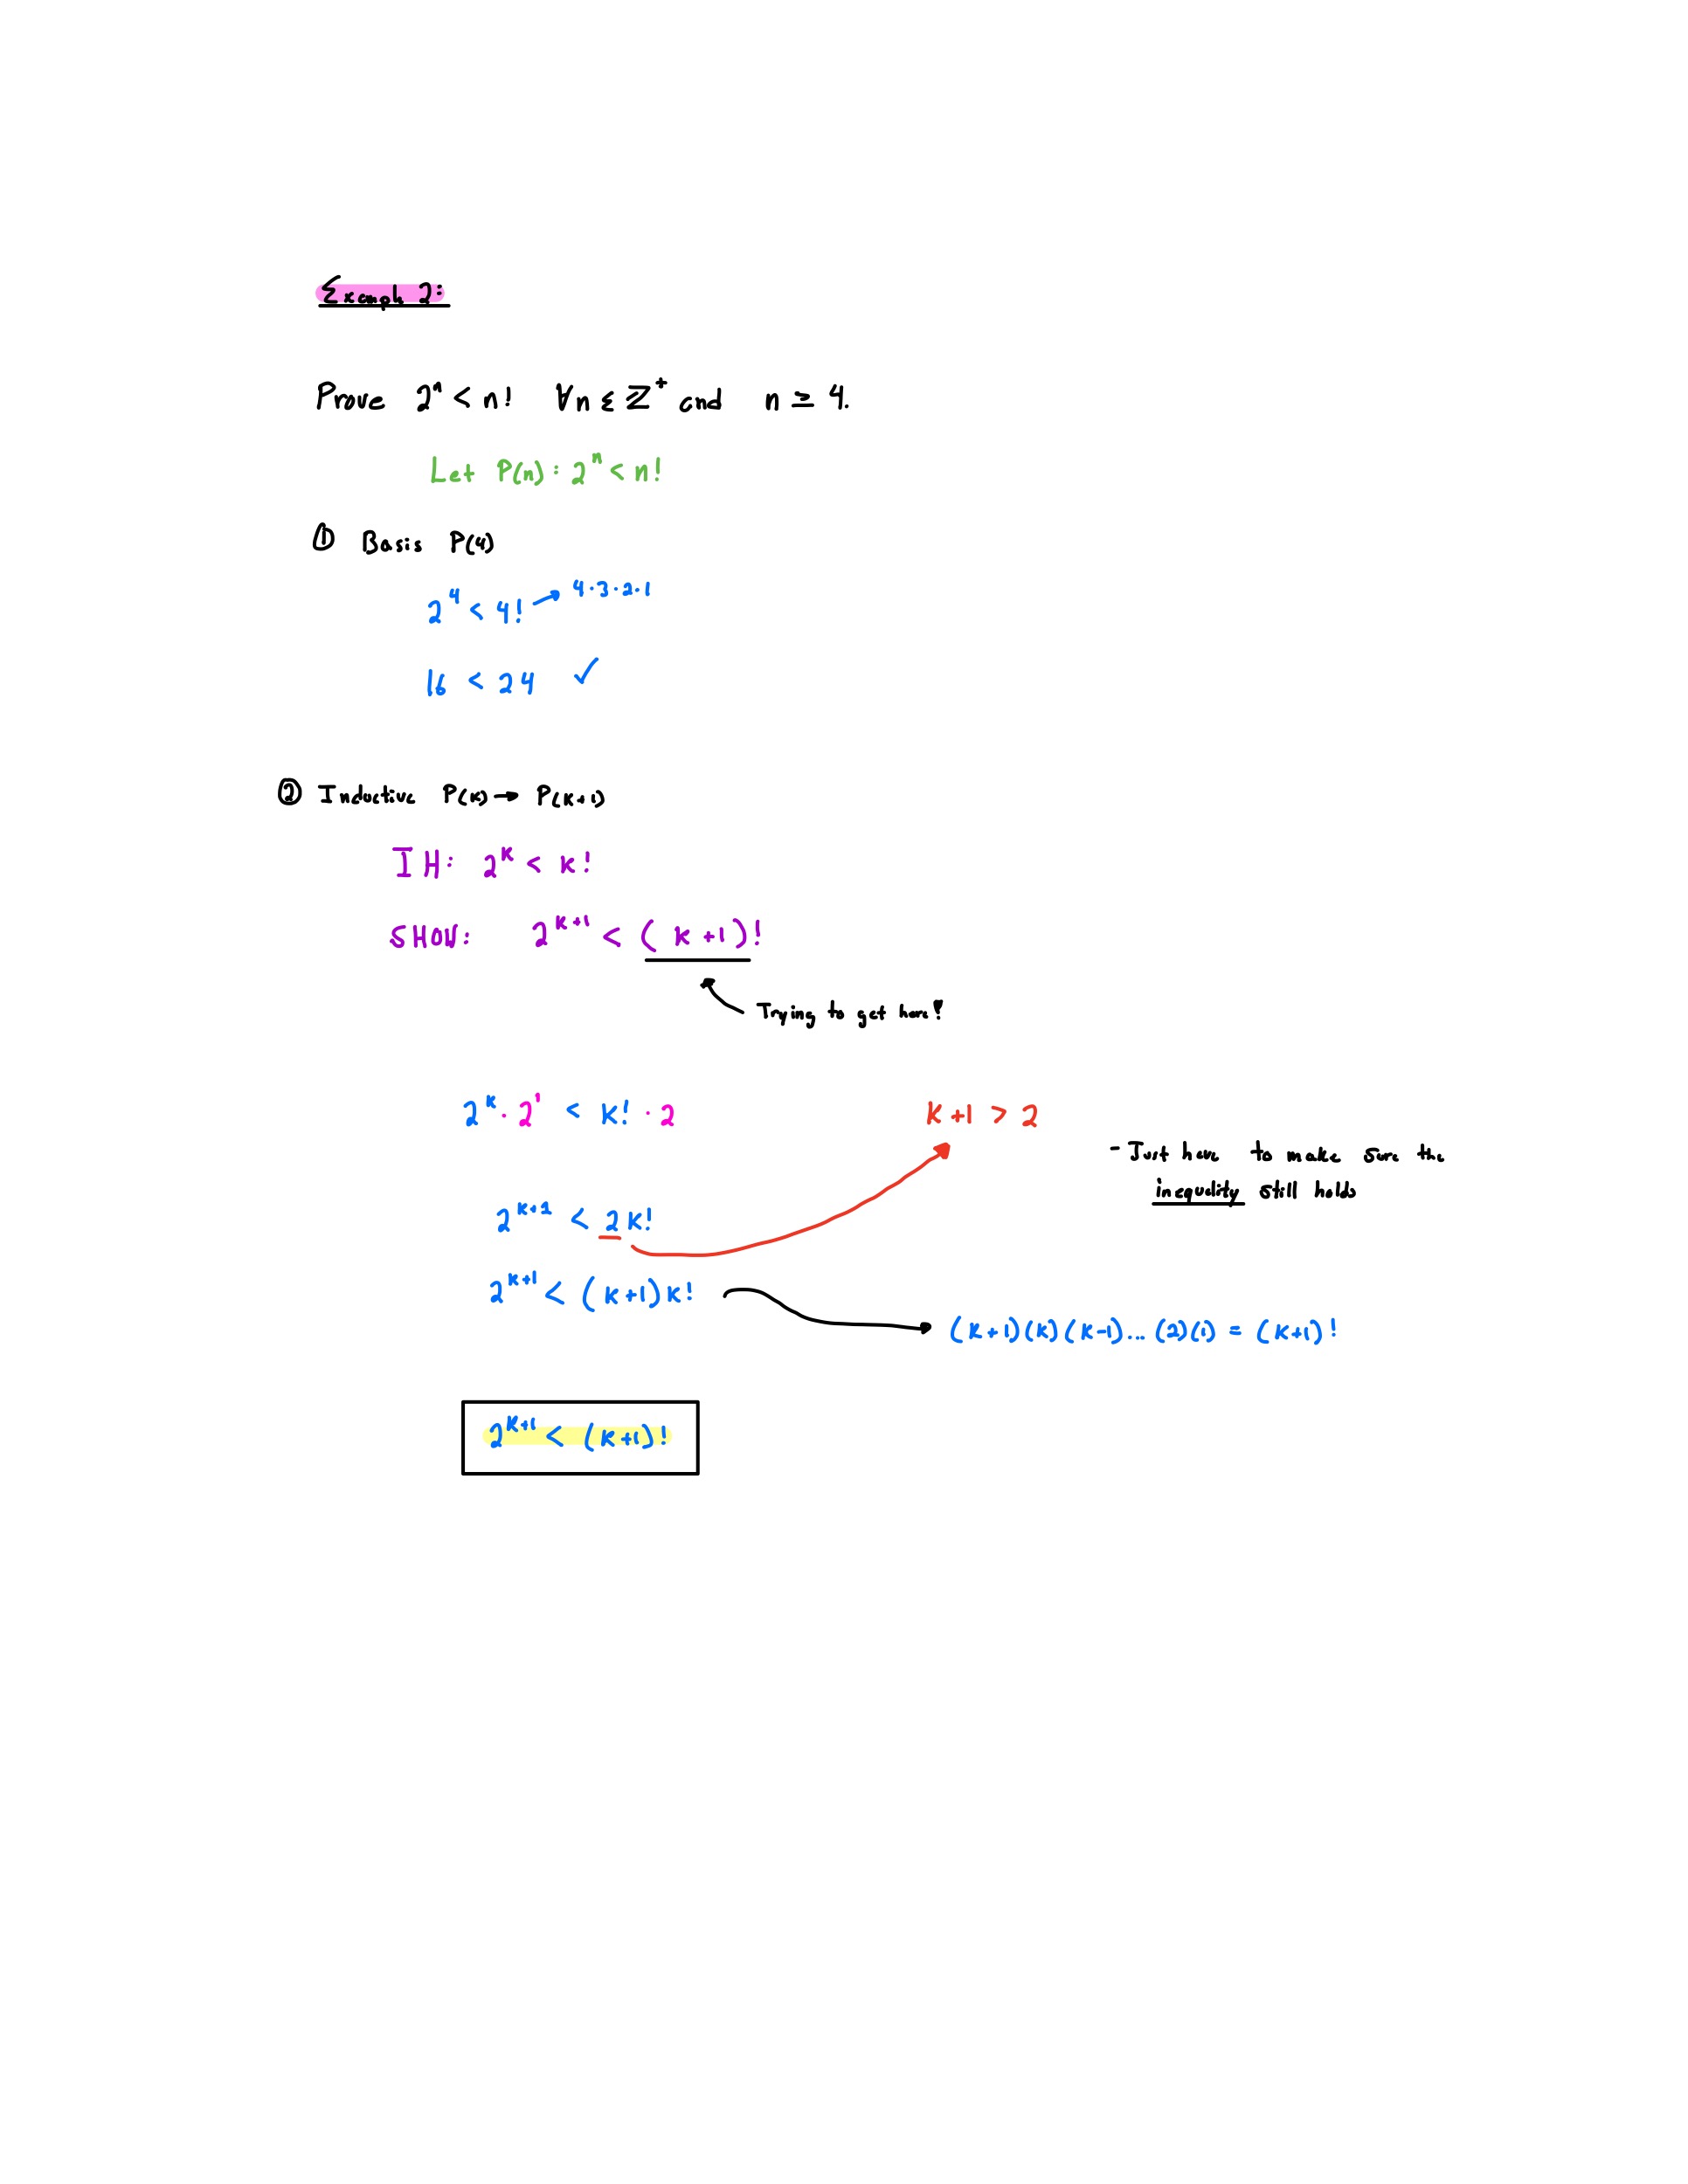 Example 2:
Prove 2ⁿ < n! ∀n ε ℤ⁺ and n ≥ 4.
Let P(n): 2ⁿ < n!
① Basis P(4)
2⁴ < 4! → 4·3·2·1
16 < 24 ✓
② Inductive P(k) → P(k+1)
IH: 2ᵏ < k!
SHOW: 2ᵏ⁺¹ < (k+1)!
Trying to get here!
2ᵏ · 2¹ < k! · 2 k+1 > 2
- Just have to make sure the
inequality still holds
2ᵏ⁺¹ < 2k!
2ᵏ⁺¹ < (k+1)k! → (k+1)(k)(k-1)...(2)(1) = (k+1)!
2ᵏ⁺¹ < (k+1)!